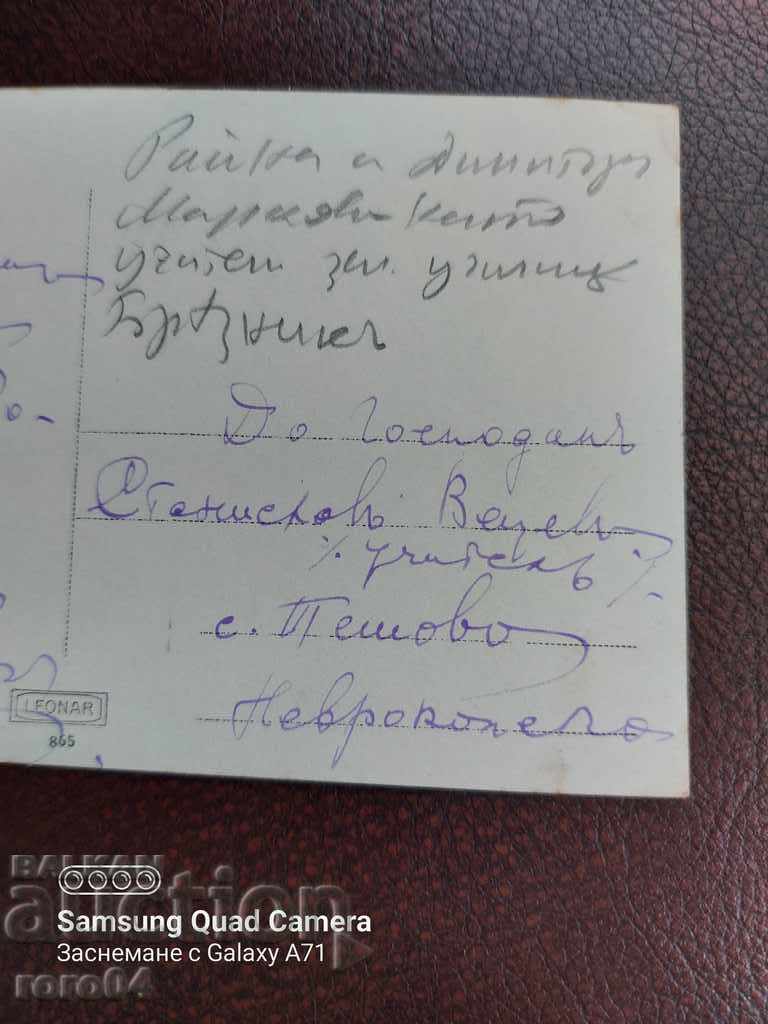 Райка и Димитър
Маркови като
учители зем. училищ
Брѣзникъ
До Господинъ
Станиславъ Вецевъ
% учителъ %
с. Тешово
Неврокопско
LEONAR
865
BALKAN
auction
Samsung Quad Camera
Заснемане с Galaxy A71
roro04